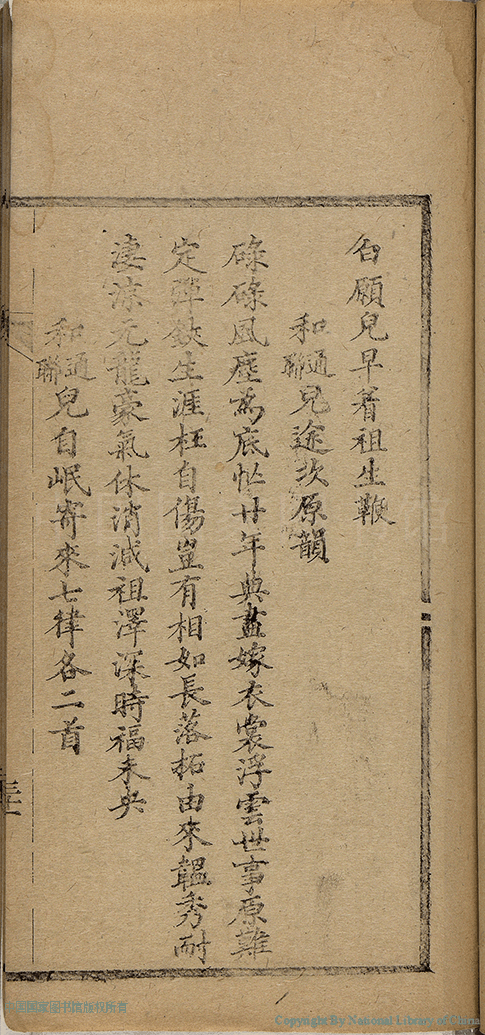 白願兒早着祖生鞭
和通聯兒途次原韻
碌碌風塵為底忙廿年典盡嫁衣裳浮雲世事原難
定彈鋏生涯枉自傷豈有相如長落拓由來韞秀耐
淒涼元龍豪氣休消減祖澤深時福未央
和通聯兒自岷寄來七律各二首
Copyright By National Library of China